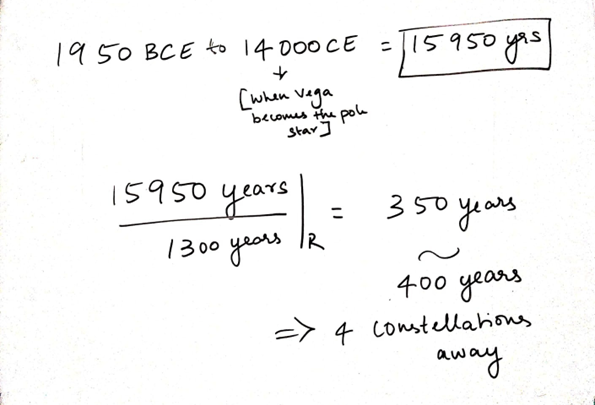 1950 BCE to 14000CE = 15950 yrs
↓
[when Vega
becomes the pole
star]
15950 years
1300 years |R = 350 years
~
400 years
=> 4 constellations
away